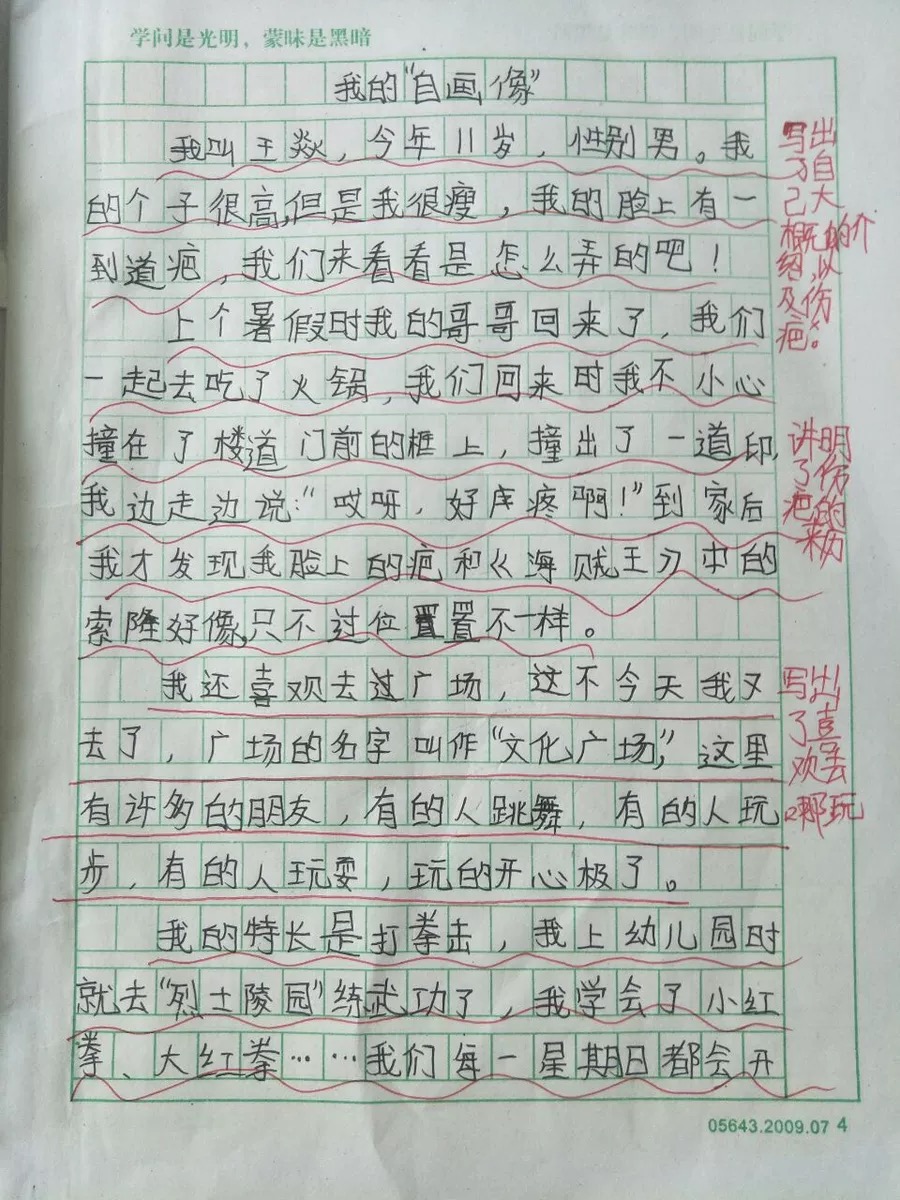 学问是光明，蒙昧是黑暗
我的"自画像"
我叫王焱，今年11岁，性别男。我
的个子很高,但是我很瘦，我的脸上有一
到道疤，我们来看看是怎么弄的吧！
上个暑假时我的哥哥回来了，我们
一起去吃了火锅，我们回来时我不小心
撞在了楼道门前的框上，撞出了一道印,
我边走边说："哎呀，好疼啊！"到家后
我才发现我脸上的疤和《海贼王》中的
索隆好像,只不过位置置不一样。
我还喜欢去过广场，这不今天我又
去了，广场的名字叫作"文化广场"，这里
有许多的朋友，有的人跳舞，有的人玩
步，有的人玩耍，玩的开心极了。
我的特长是打拳击，我上幼儿园时
就去"烈士陵园"练武功了，我学会了小红
拳、大红拳……我们每一星期日都会开
写出
了自
己大
概的介
绍,以
及伤
疤。
讲明
了伤
疤的
来历
写出
了喜
欢去
哪玩
05643.2009.07 4